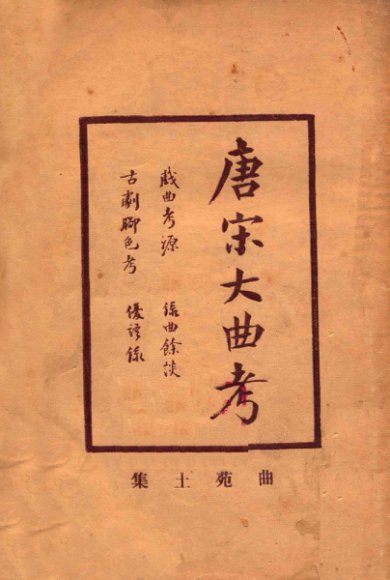 唐宋大曲考
戲曲考源 錄曲餘談
古劇腳色考 優語錄
曲苑土集